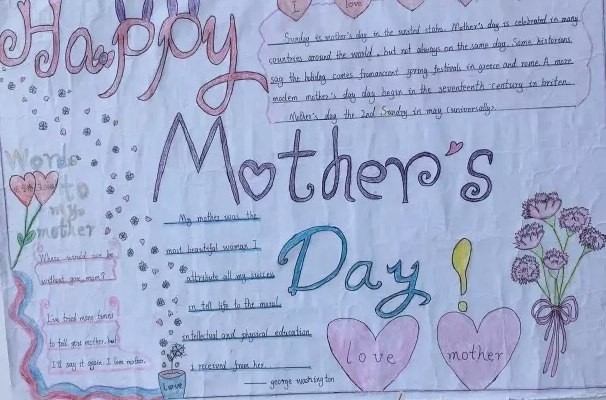 Happy
I love
Sunday is mother's day in the united states. Mother's day is celebrated in many
countries around the world, but not always on the same day. Some historians
say the holiday comes from ancent spring festivals in greece and rome. A more
modern mother's day day began in the seventeenth century in briten.
Mother's day the 2nd Sunday in may (universally).
Mother's
Day!
Words
to
my
mother
Where would we be
without you, mom?
I've tried many times
to tell you, mother, but
I'll say it again. I love mother.
My mother was the
most beautiful woman I
attribute all my success
in tell life to the moral,
intellectual and physical education
i received from her.
—— george washington
love
love
mother